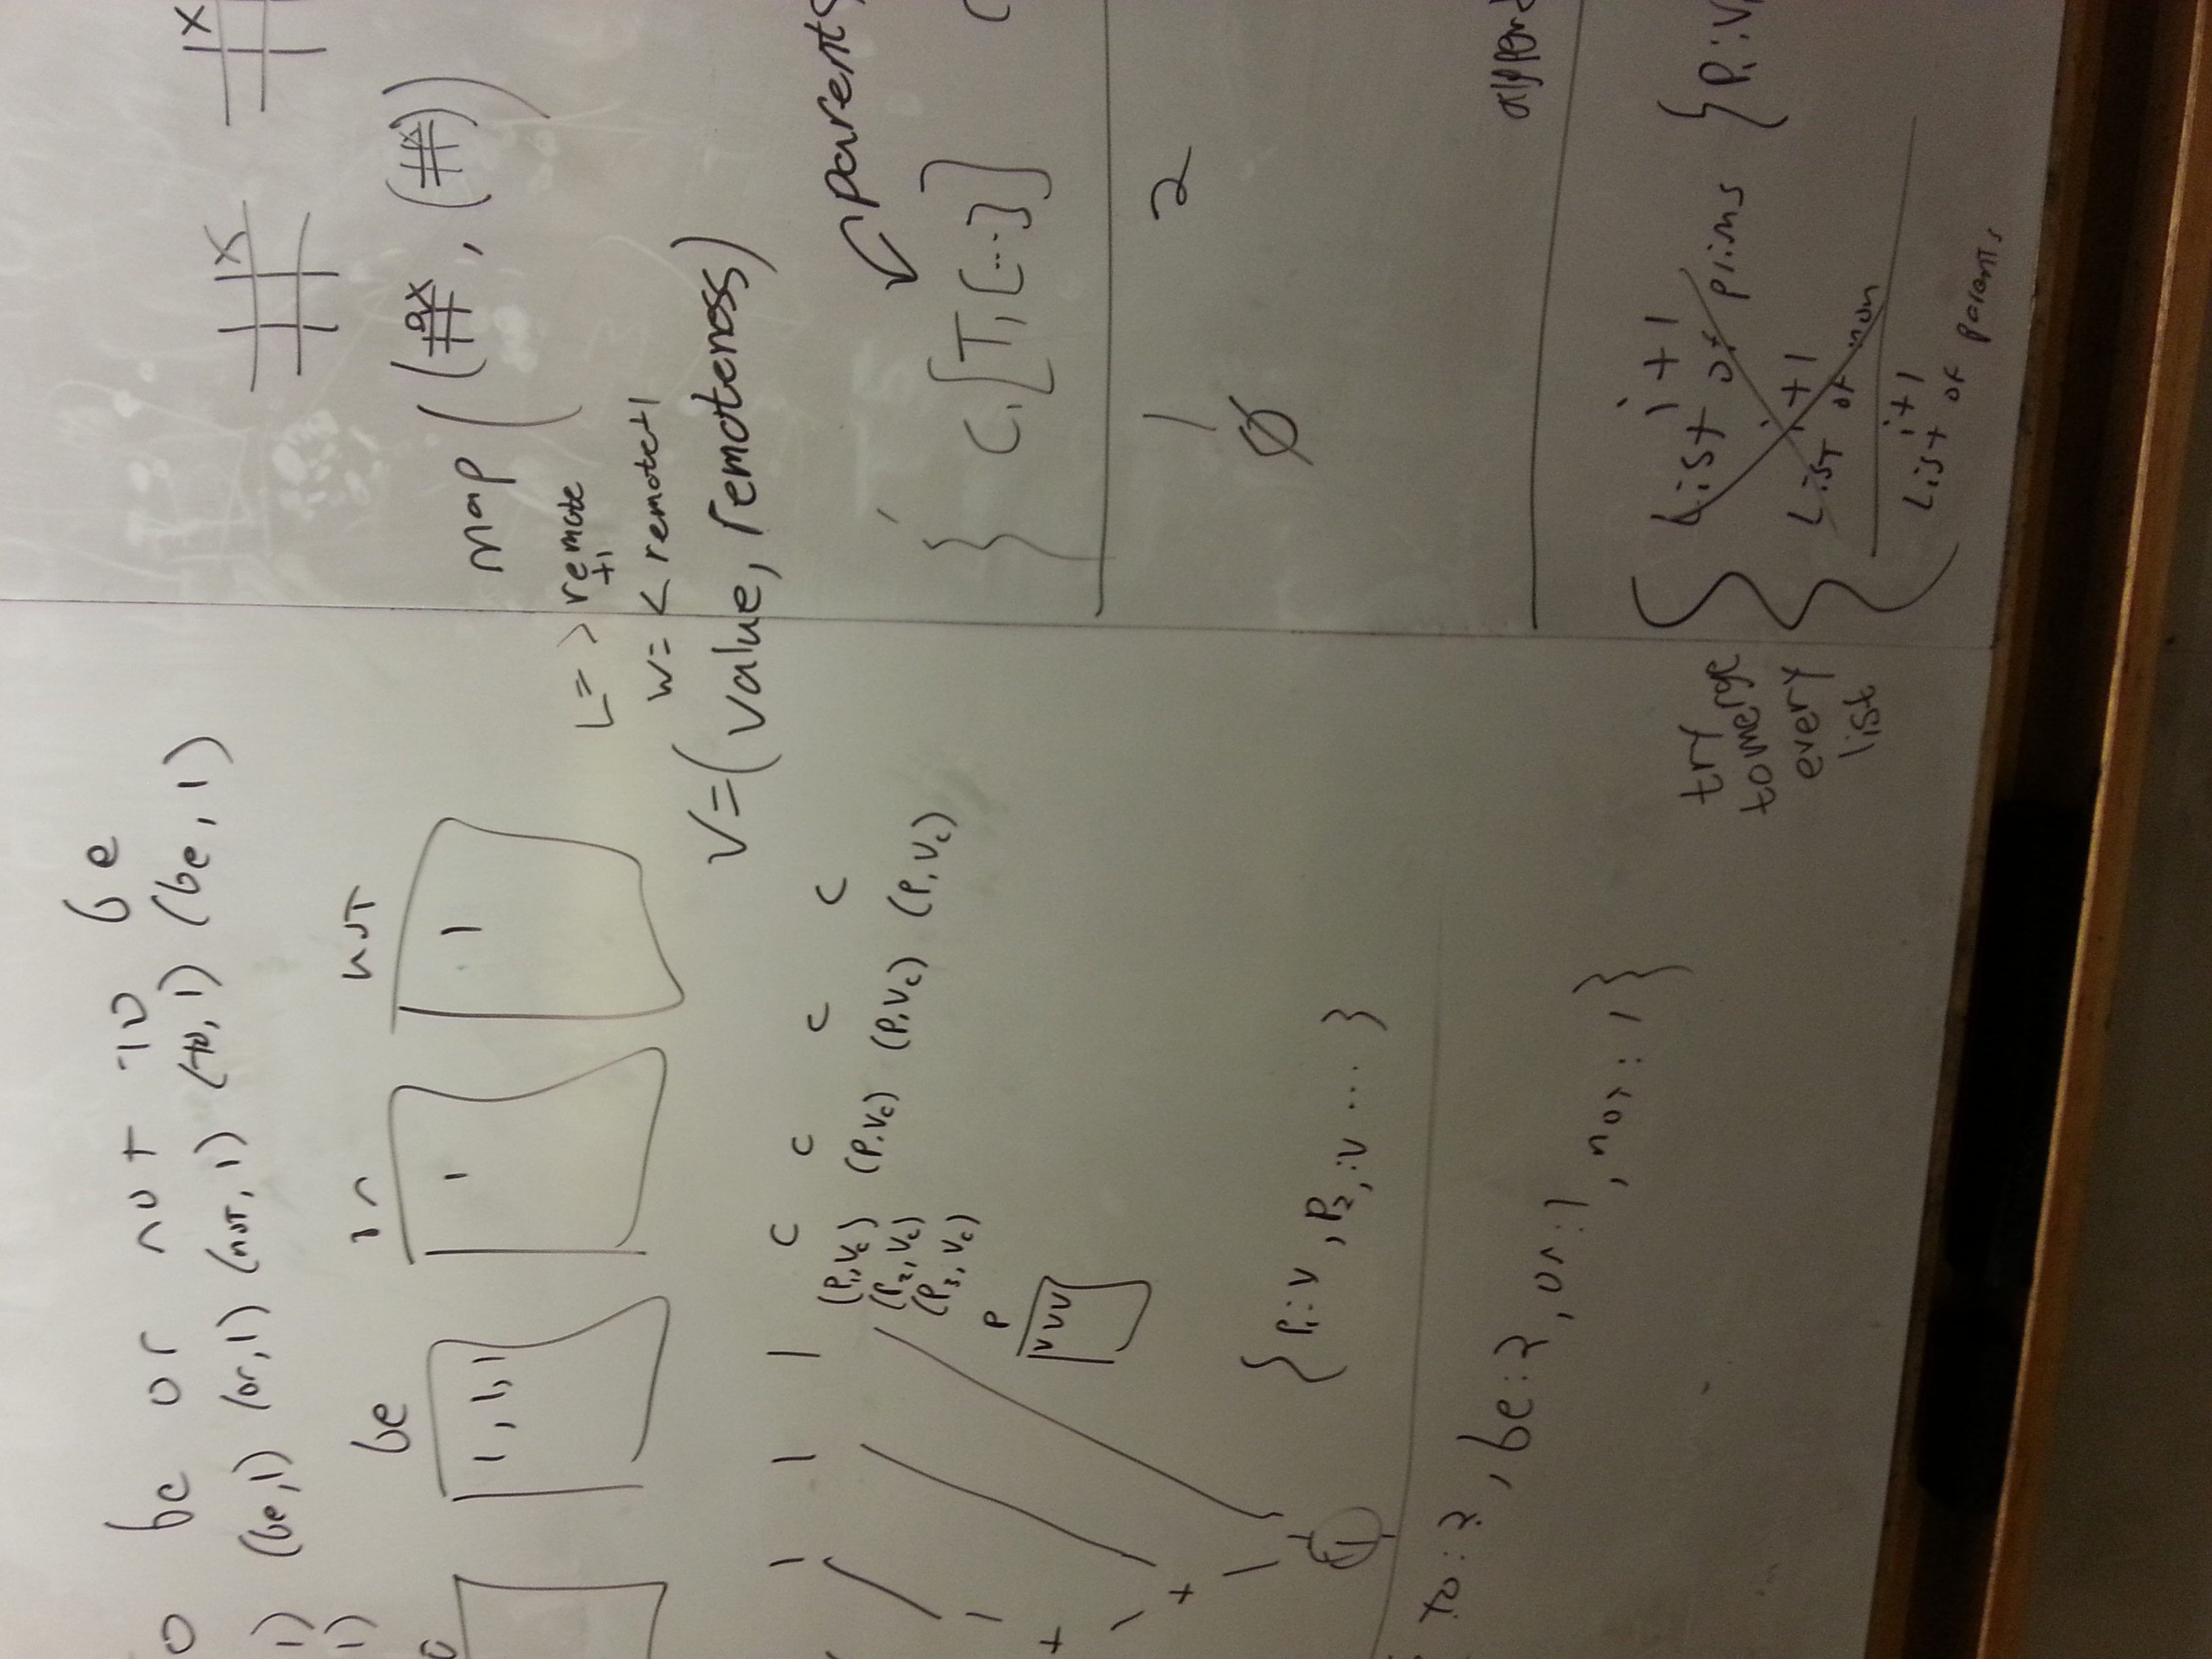 o be or not to be
1) (be,1) (or,1) (not,1) (to,1) (be,1)
1)
be or not
1,1,1 1 1
1 1 1 C C C C
(P1,Vc) (P,Vc) (P,Vc) (P,Vc)
(P2,Vc)
(P3,Vc)
1
+
P
V V V
+
{P1:V, P2,:V ... }
to:2, be:2, or:1, not:1}
X X
map ((#, (#))
L= > remote
+1
W= < remote+1
V=(value, remoteness)
parents
{ C1[T,[...]] C
1 2
Ø
try
to merge
every
list
{ i+1
List of prims {P1:V
i+1
List of non
i+1
List of parents